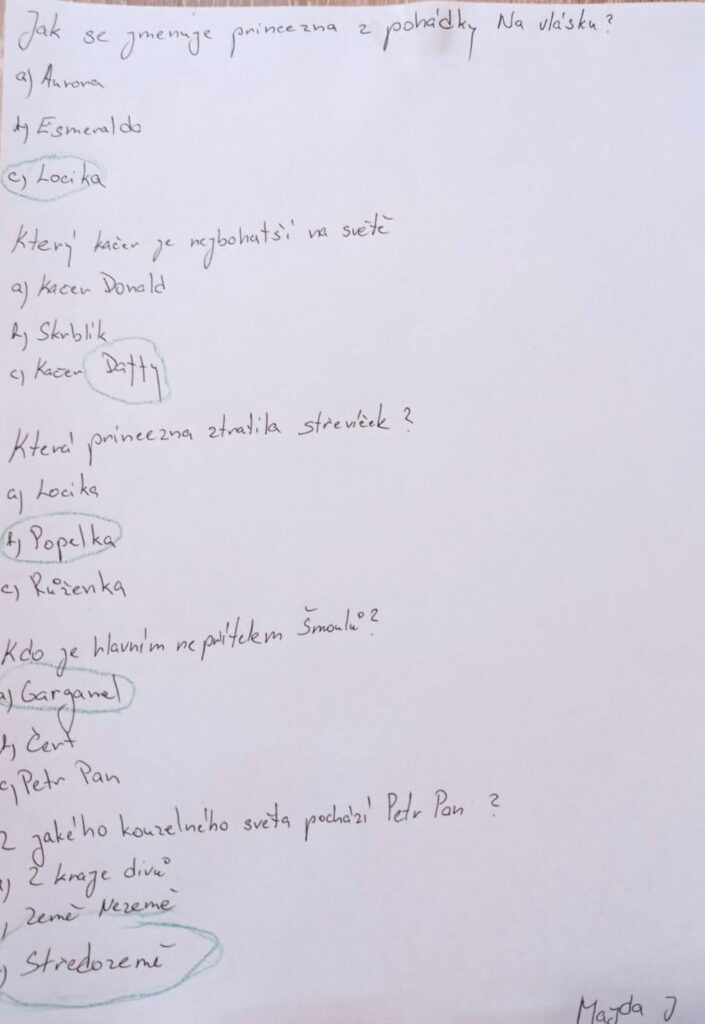 Jak se jmenuje princezna z pohádky Na vlásku?
a) Aurora
b) Esmeralda
c) Locika
Který kačer je nejbohatší na světě
a) Kačer Donald
b) Skrblík
c) Kačer Daffy
Která princezna ztratila střevíček?
a) Locika
b) Popelka
c) Růženka
Kdo je hlavním nepřítelem Šmoulů?
a) Gargamel
b) Čert
c) Petr Pan
Z jakého kouzelného světa pochází Petr Pan?
a) Z kraje divů
) Země Nezemě
) Středozemě
Magda J.